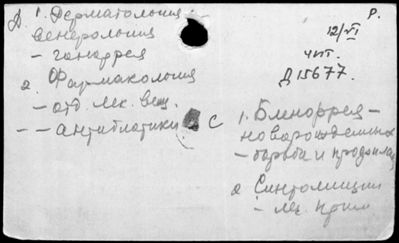 Д 1. Дерматология –
венерология
– гонорея
2. Фармакология
– отд. лек. вещ.
– – антибиотики С
Р.
12/VI
чит.
Д 15677.
1. Бленоррея –
новорожденных
– борьба и
2. Синтомицин
– леч. прим